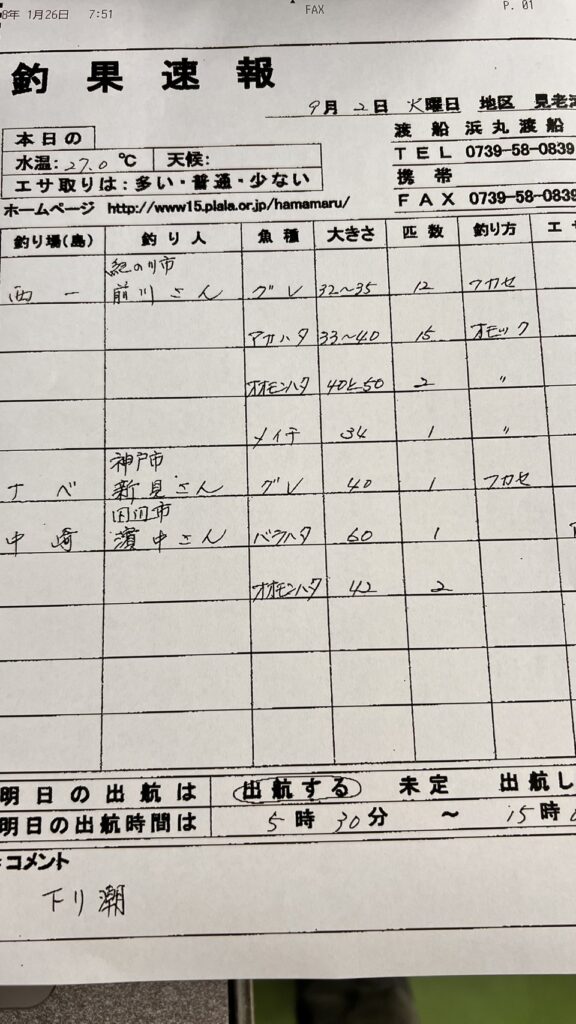 8年 1月26日 7:51 FAX P. 01
釣果速報
9月 2日 火曜日 地区 見老津
本日の
渡船 浜丸渡船
水温: 27.0 ℃ 天候:
TEL 0739-58-0839
エサ取りは:多い・普通・少ない
携帯
ホームページ http://www15.plala.or.jp/hamamaru/
FAX 0739-58-0839
釣り場(島) 釣り人 魚種 大きさ 匹数 釣り方 エサ
紀の川市
西一 前川さん グレ 32~35 12 フカセ
アカハタ 33~40 15 オモック
オオモンハタ 40と50 2 〃
メイチ 34 1 〃
神戸市
ナベ 新見さん グレ 40 1 フカセ
田辺市
中崎 濱中さん バラハタ 60 1
オオモンハタ 42 2
明日の出航は 出航する 未定 出航し
明日の出航時間は 5時30分 ~ 15時
コメント
下り潮